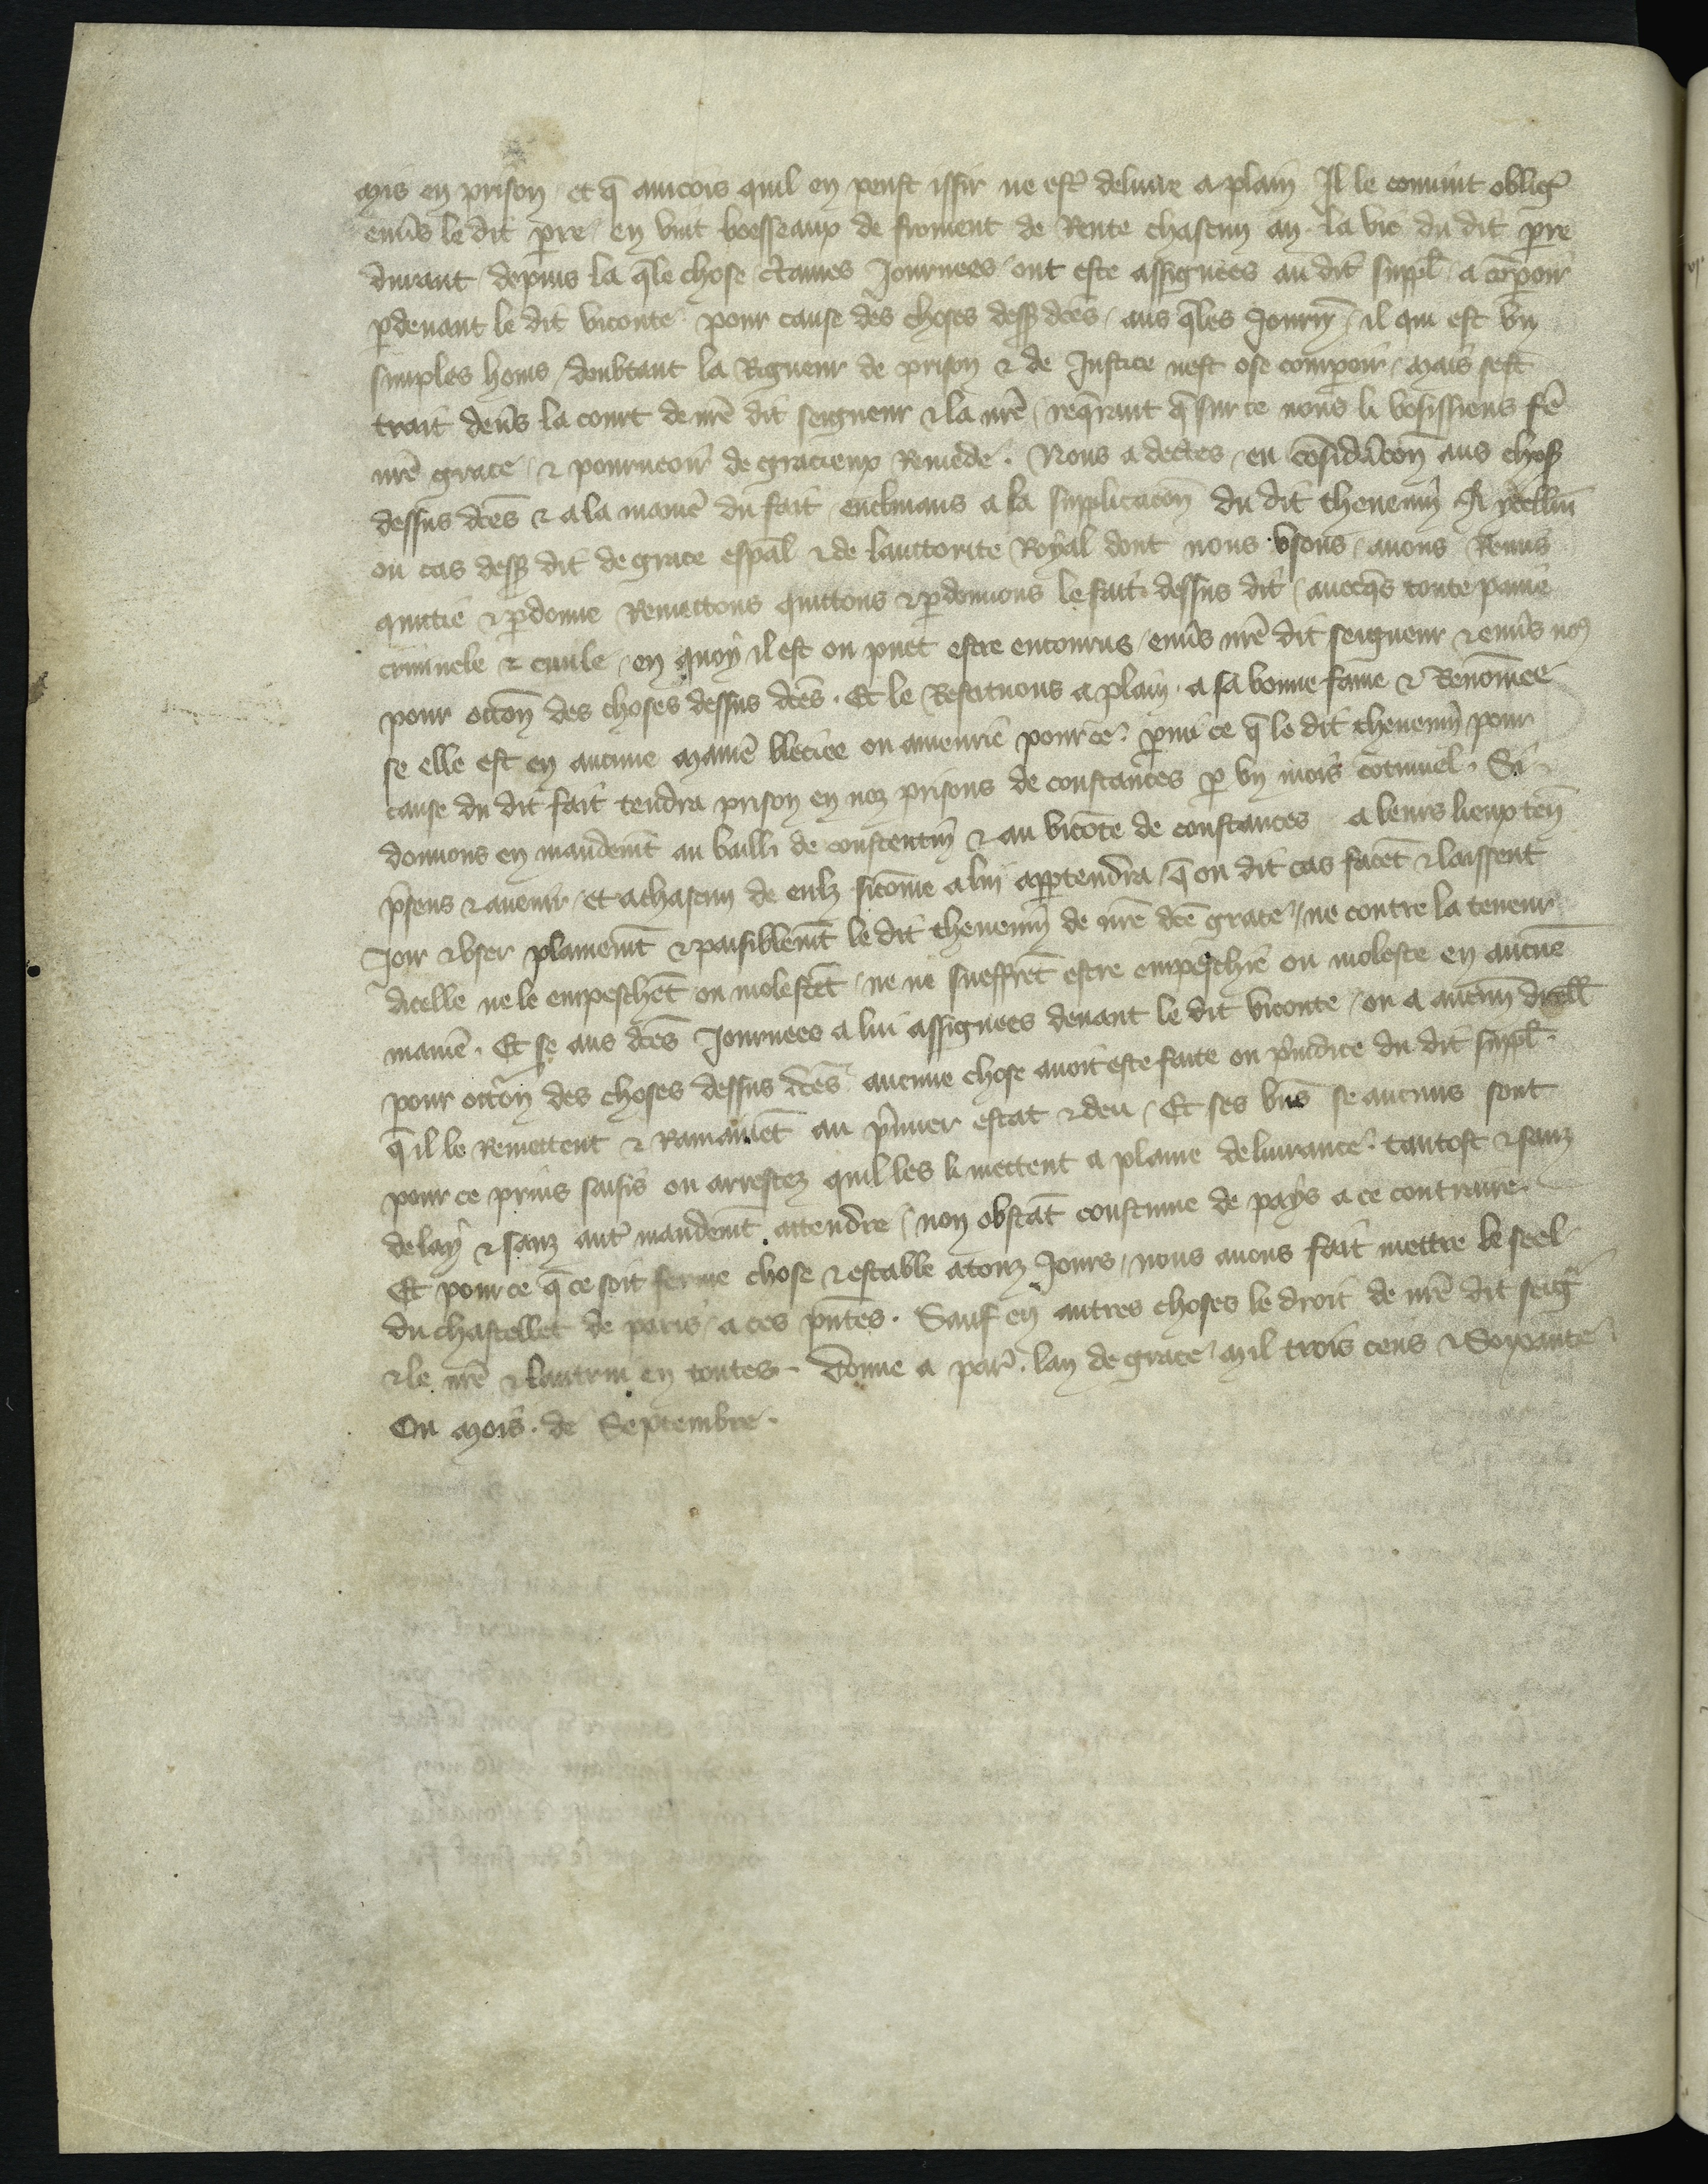 mis en prison / et q̄ aincois quil en peust issir ne estr̄ deliure a plain Il le conuint obligr̄
enūs le dit p̄re / en vint boesseaux de froment de Rente chascun an la vie du dit p̄re
durant / depuis la q̄le chose c̄taines Journees ont este assignees au dit suppl̄ / a cōpoir
p̄deuant le dit viconte pour cause des choses dess9 dc̄es / aus q̄les Journ̄ / il qui est vn
simples homs / doubtant la Rigueur de prison & de Justice nest ose compoir / mais sest
trait deūs la court de nr̄e dit seigneur & la nr̄e / req̄rant q̄ sur ce nous li vosissiens fē
nr̄e grace / & pourueoir de gracieux Remede . Nous a dectes / en cōsidāon aus chos9
dessus dc̄es & a la manie du fait / enclinans a la supplicacōn du dit theuenin A ycellui
ou cas dess9 dit de grace esp̄al & de lauctorite Royal dont nous vsons / auons Remis
quictie & p̄donne Remectons quictons & p̄donnons le fait dessus dit / auecq̄s toute paine
criminele & ciuile / en quoy il est ou puet estre encourus / enūs nr̄e dit seigneur & enūs no9
pour occōn des choses dessus dc̄es . Et le Restituons a plain . a sa bonne fame & Renōmee
se elle est en aucune maniē bleciee ou amenrie pour ce . p̄mi ce q̄ le dit theuenin pour
cause du dit fait tendra prison en noz prisons de constances p̄ vn mois cōtinuel . Si
donnons en mandemt̄ au bailli de constentin & au vicōte de constances a leurs lieuxten̄
p̄sens & auenir / et a chascun de eulz sicōme a lui app̄tendra / q̄ ou dit cas facēt & laissent
Joir & vser plainemt̄ & paisiblemt̄ le dit theuenin de nr̄e dc̄e grace / ne contre la teneur
dicelle ne le empeschēt ou molestēt / ne ne sueffrēt estre empeschie ou moleste en aucūe
maniē . Et se aus dc̄es Journees a lui assignees deuant le dit viconte / ou a aucun dicell̄
pour occōn des choses dessus dc̄es aucune chose auoit este faite ou p̄iudice du dit suppl̄ .
q̄ il le Remettent & Ramainēt au p̄mier estat & deu / Et ses biēs se aucuns sont
pour ce prins saisis ou arrestez quil les li mettent a plaine deliurance . tantost & sanz
delay & sanz autr̄ mandemt̄ attendre / non obstāt coustume de pays a ce contraire .
Et pour ce q̄ ce soit ferme chose & estable a touz Jours / nous auons fait mettre le seel
du chastellet de paris / a ces p̄ntes . Sauf en autres choses le droit de nr̄e dit seigr̄
& le nr̄e & lautrui en toutes . Donne a par̄ . lan de grace mil trois cens & Soixante
Ou mois . de Septembre .